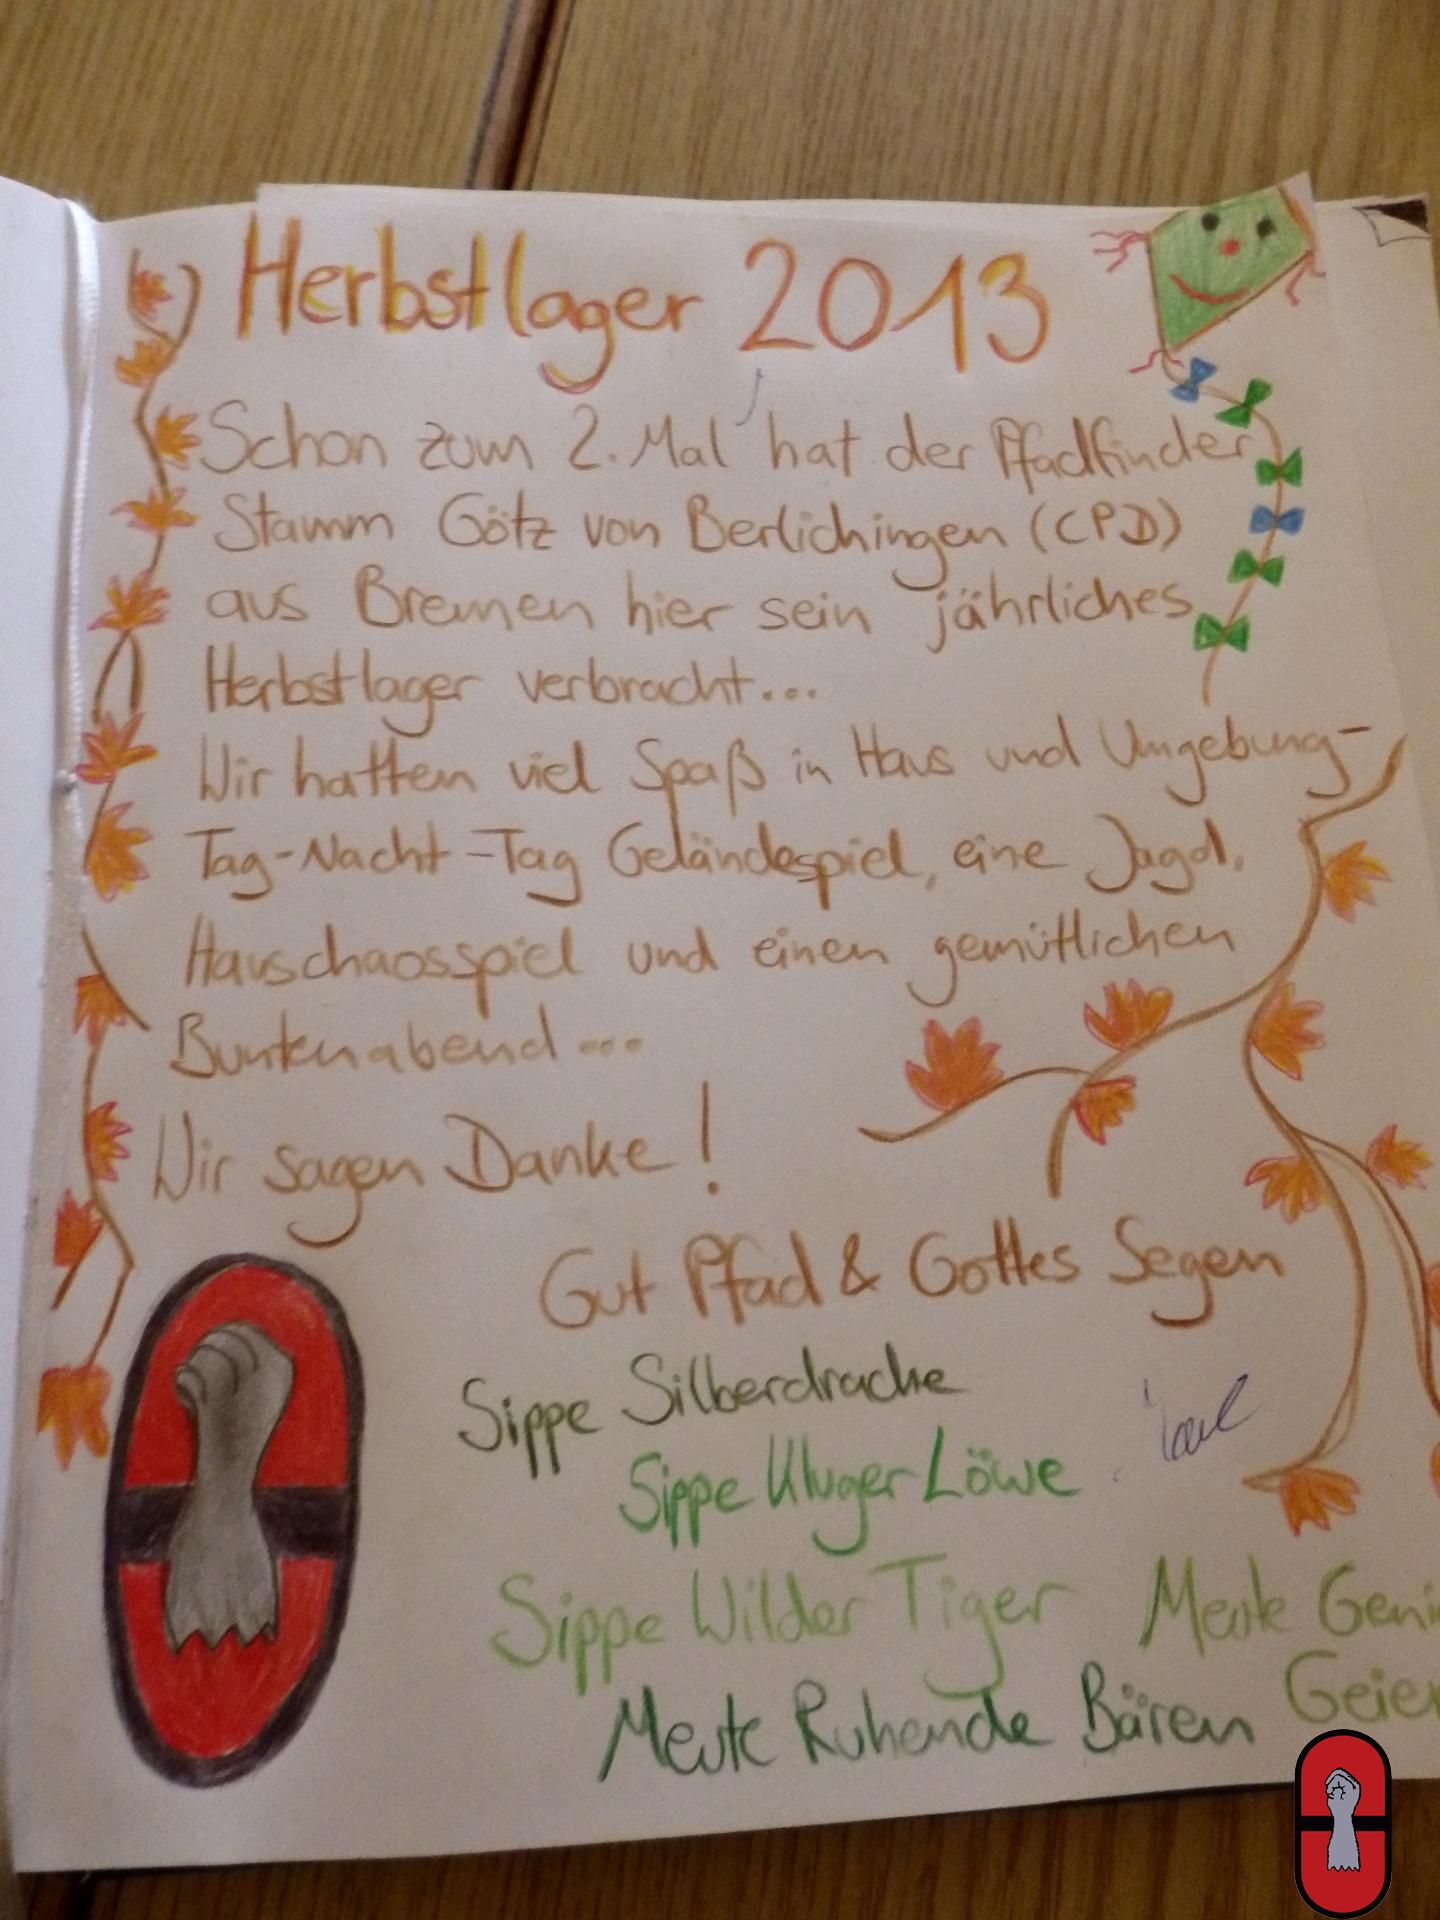 Herbstlager 2013
Schon zum 2. Mal hat der Pfadfinder
Stamm Götz von Berlichingen (CPD)
aus Bremen hier sein jährliches
Herbstlager verbracht...
Wir hatten viel Spaß in Haus und Umgebung-
Tag-Nacht-Tag Geländespiel, eine Jagd,
Hauschaosspiel und einen gemütlichen
Buntenabend...
Wir sagen Danke!
Gut Pfad & Gottes Segen
Sippe Silberdrache
Sippe Kluger Löwe
Sippe Wilder Tiger
Meute
Geier
Meute Ruhende Bären